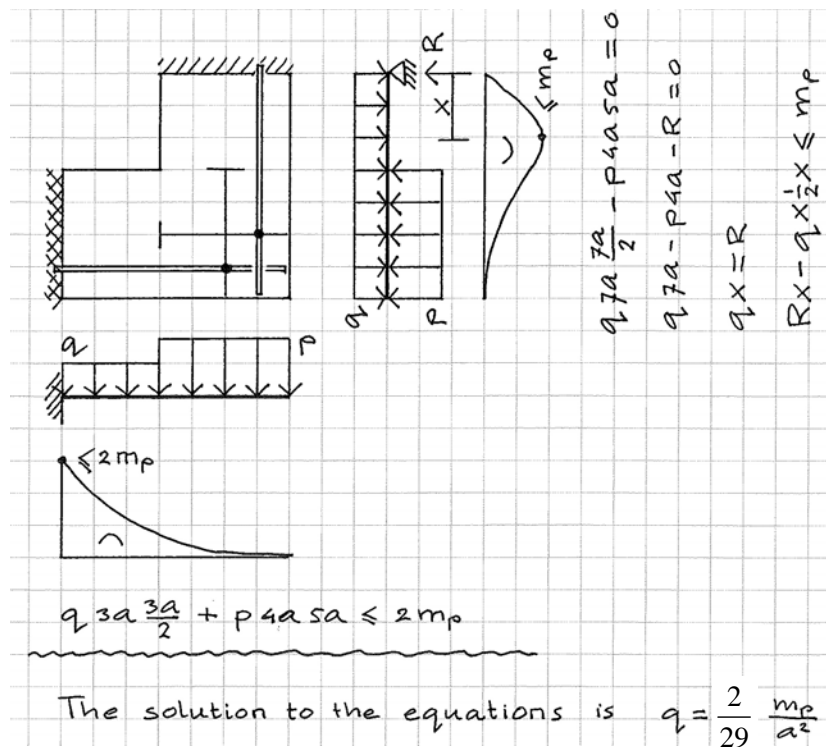 R
x
≤ mp
q
p
q 7a 7a/2 - p4a5a = 0
q 7a - p4a - R = 0
q x = R
Rx - q x 1/2 x ≤ mp
q
p
≤ 2mp
q 3a 3a/2 + p 4a 5a ≤ 2mp
The solution to the equations is q = 2/29 mp/a²